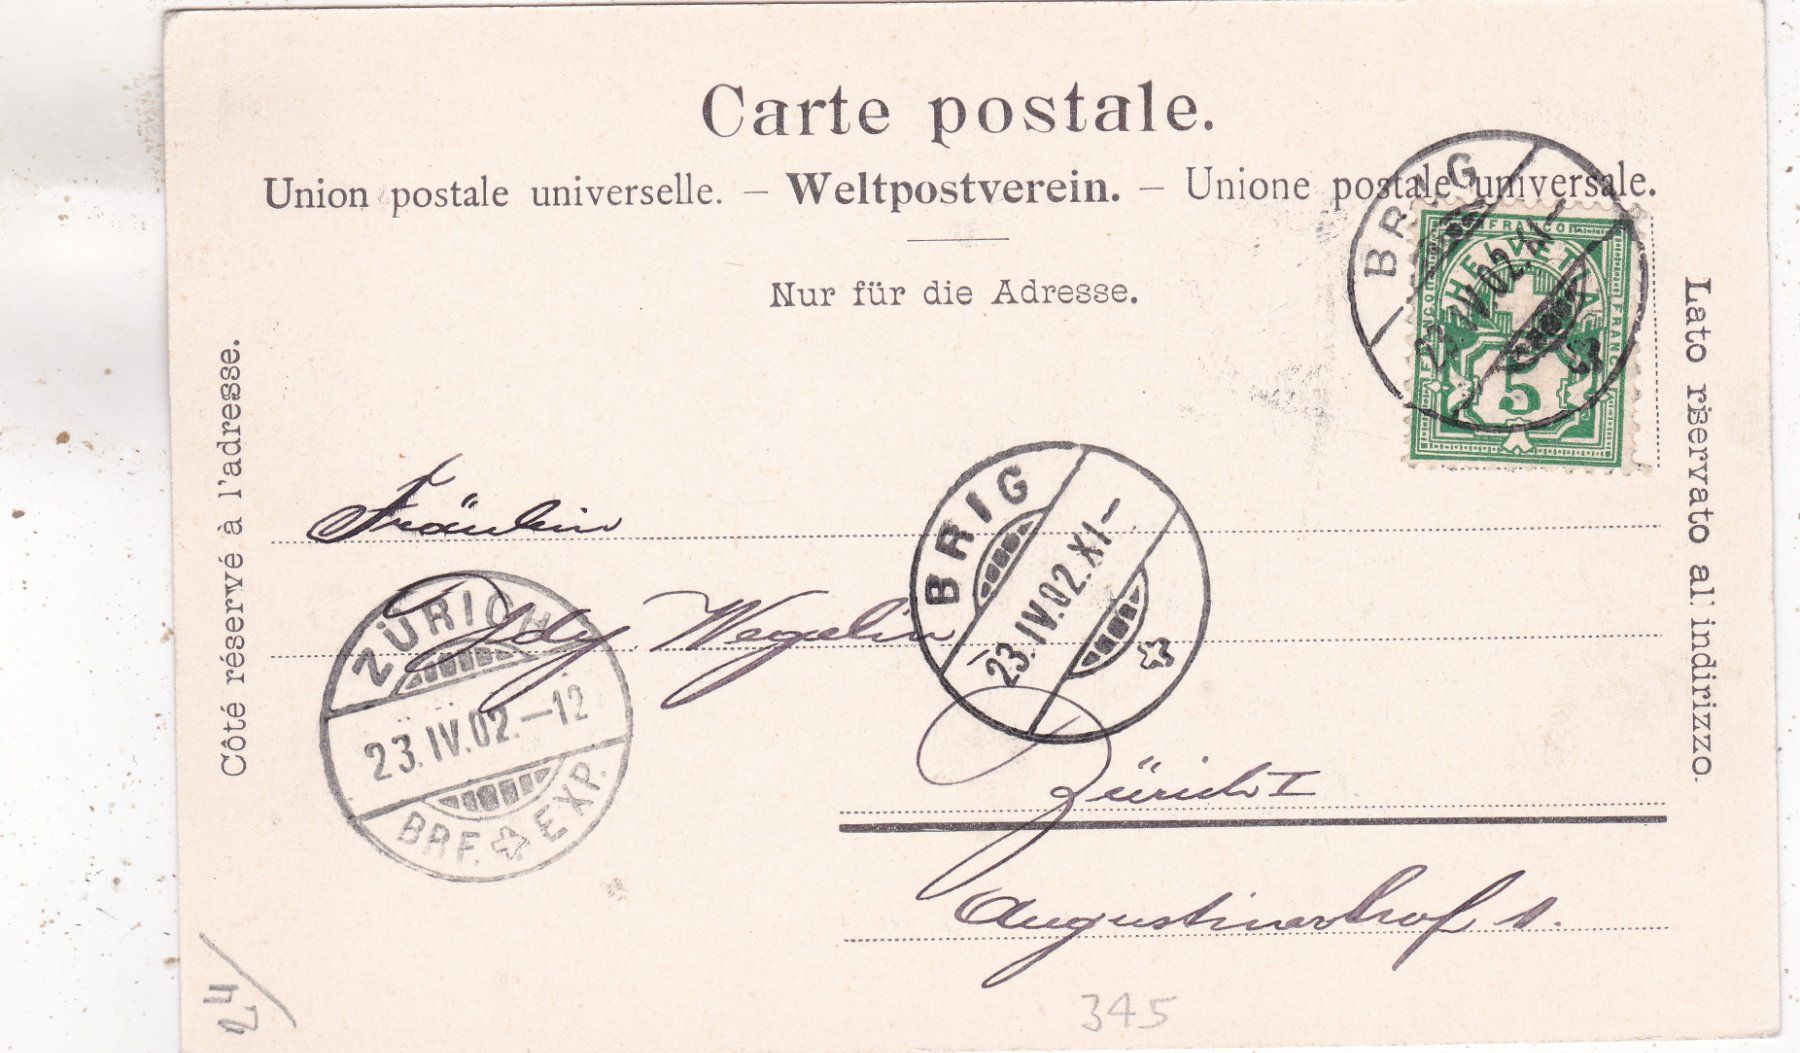 Carte postale.
Union postale universelle. – Weltpostverein. – Unione postale universale.
Nur für die Adresse.
Côté réservé à l'adresse.
Lato riservato all'indirizzo.
BRIG
23.IV.02.XI–
FRANCO FRANCO FRANCO
HELVETIA
5
Fräulein
Idy Wegelin
BRIG
23.IV.02.XI–
ZÜRICH
23.IV.02.–12
BRF. EXP.
Zürich I
Augustinerhof 1.
24/
345